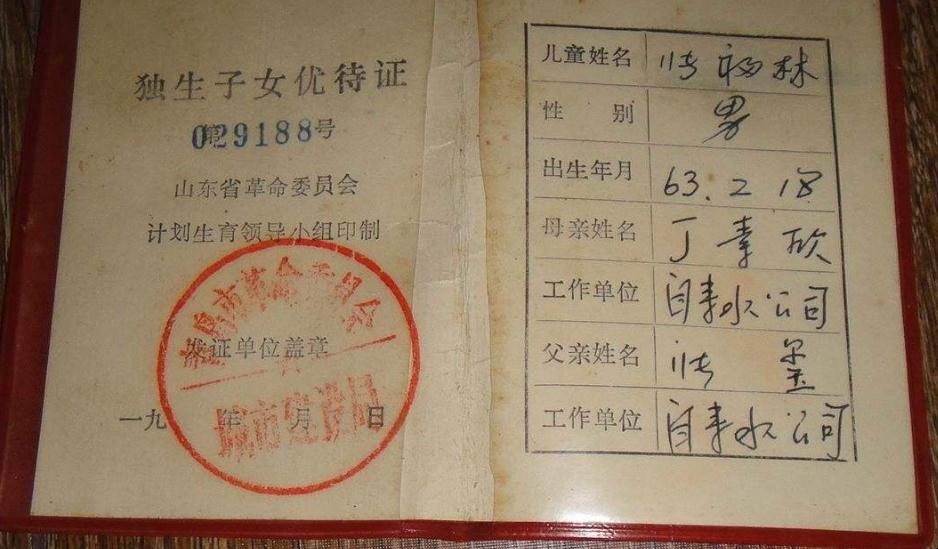 独生子女优待证
第029188号
山东省革命委员会
计划生育领导小组印制
市革命委员会
发证单位盖章
城市建设局
一九 年 月 日
儿童姓名 张 林
性别 男
出生年月 63.2 18
母亲姓名 丁 欣
工作单位 自来水公司
父亲姓名 张
工作单位 自来水公司